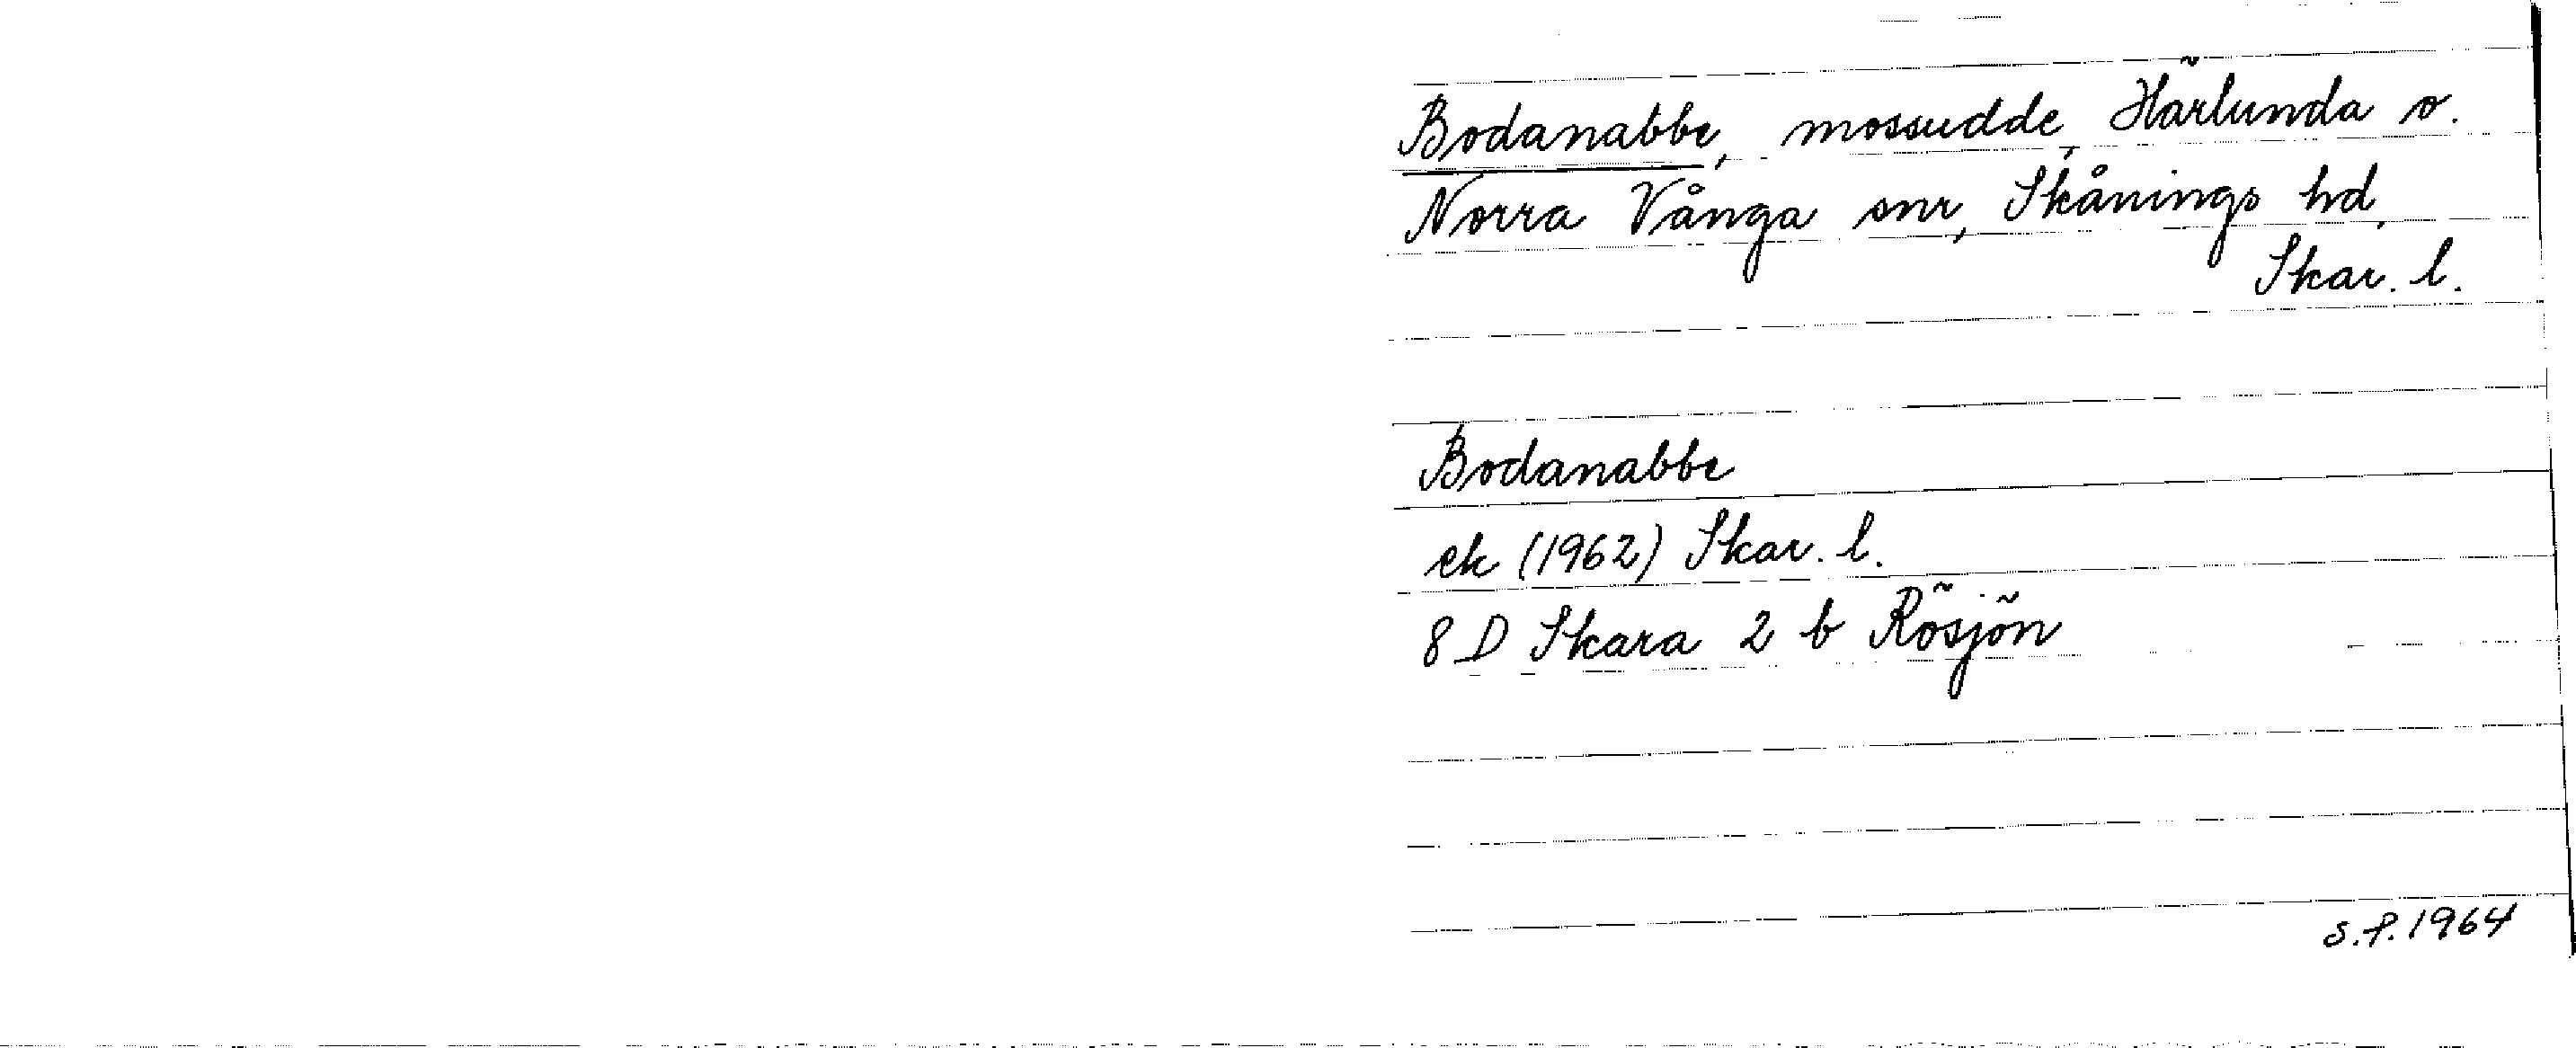 Bodanabbe, mossudde, Härlunda o.
Norra Vånga snr, Skånings hd,
Skar. l.
Bodanabbe
ek (1962) Skar. l.
8 D Skara 2 b Rösjön
S.P. 1964